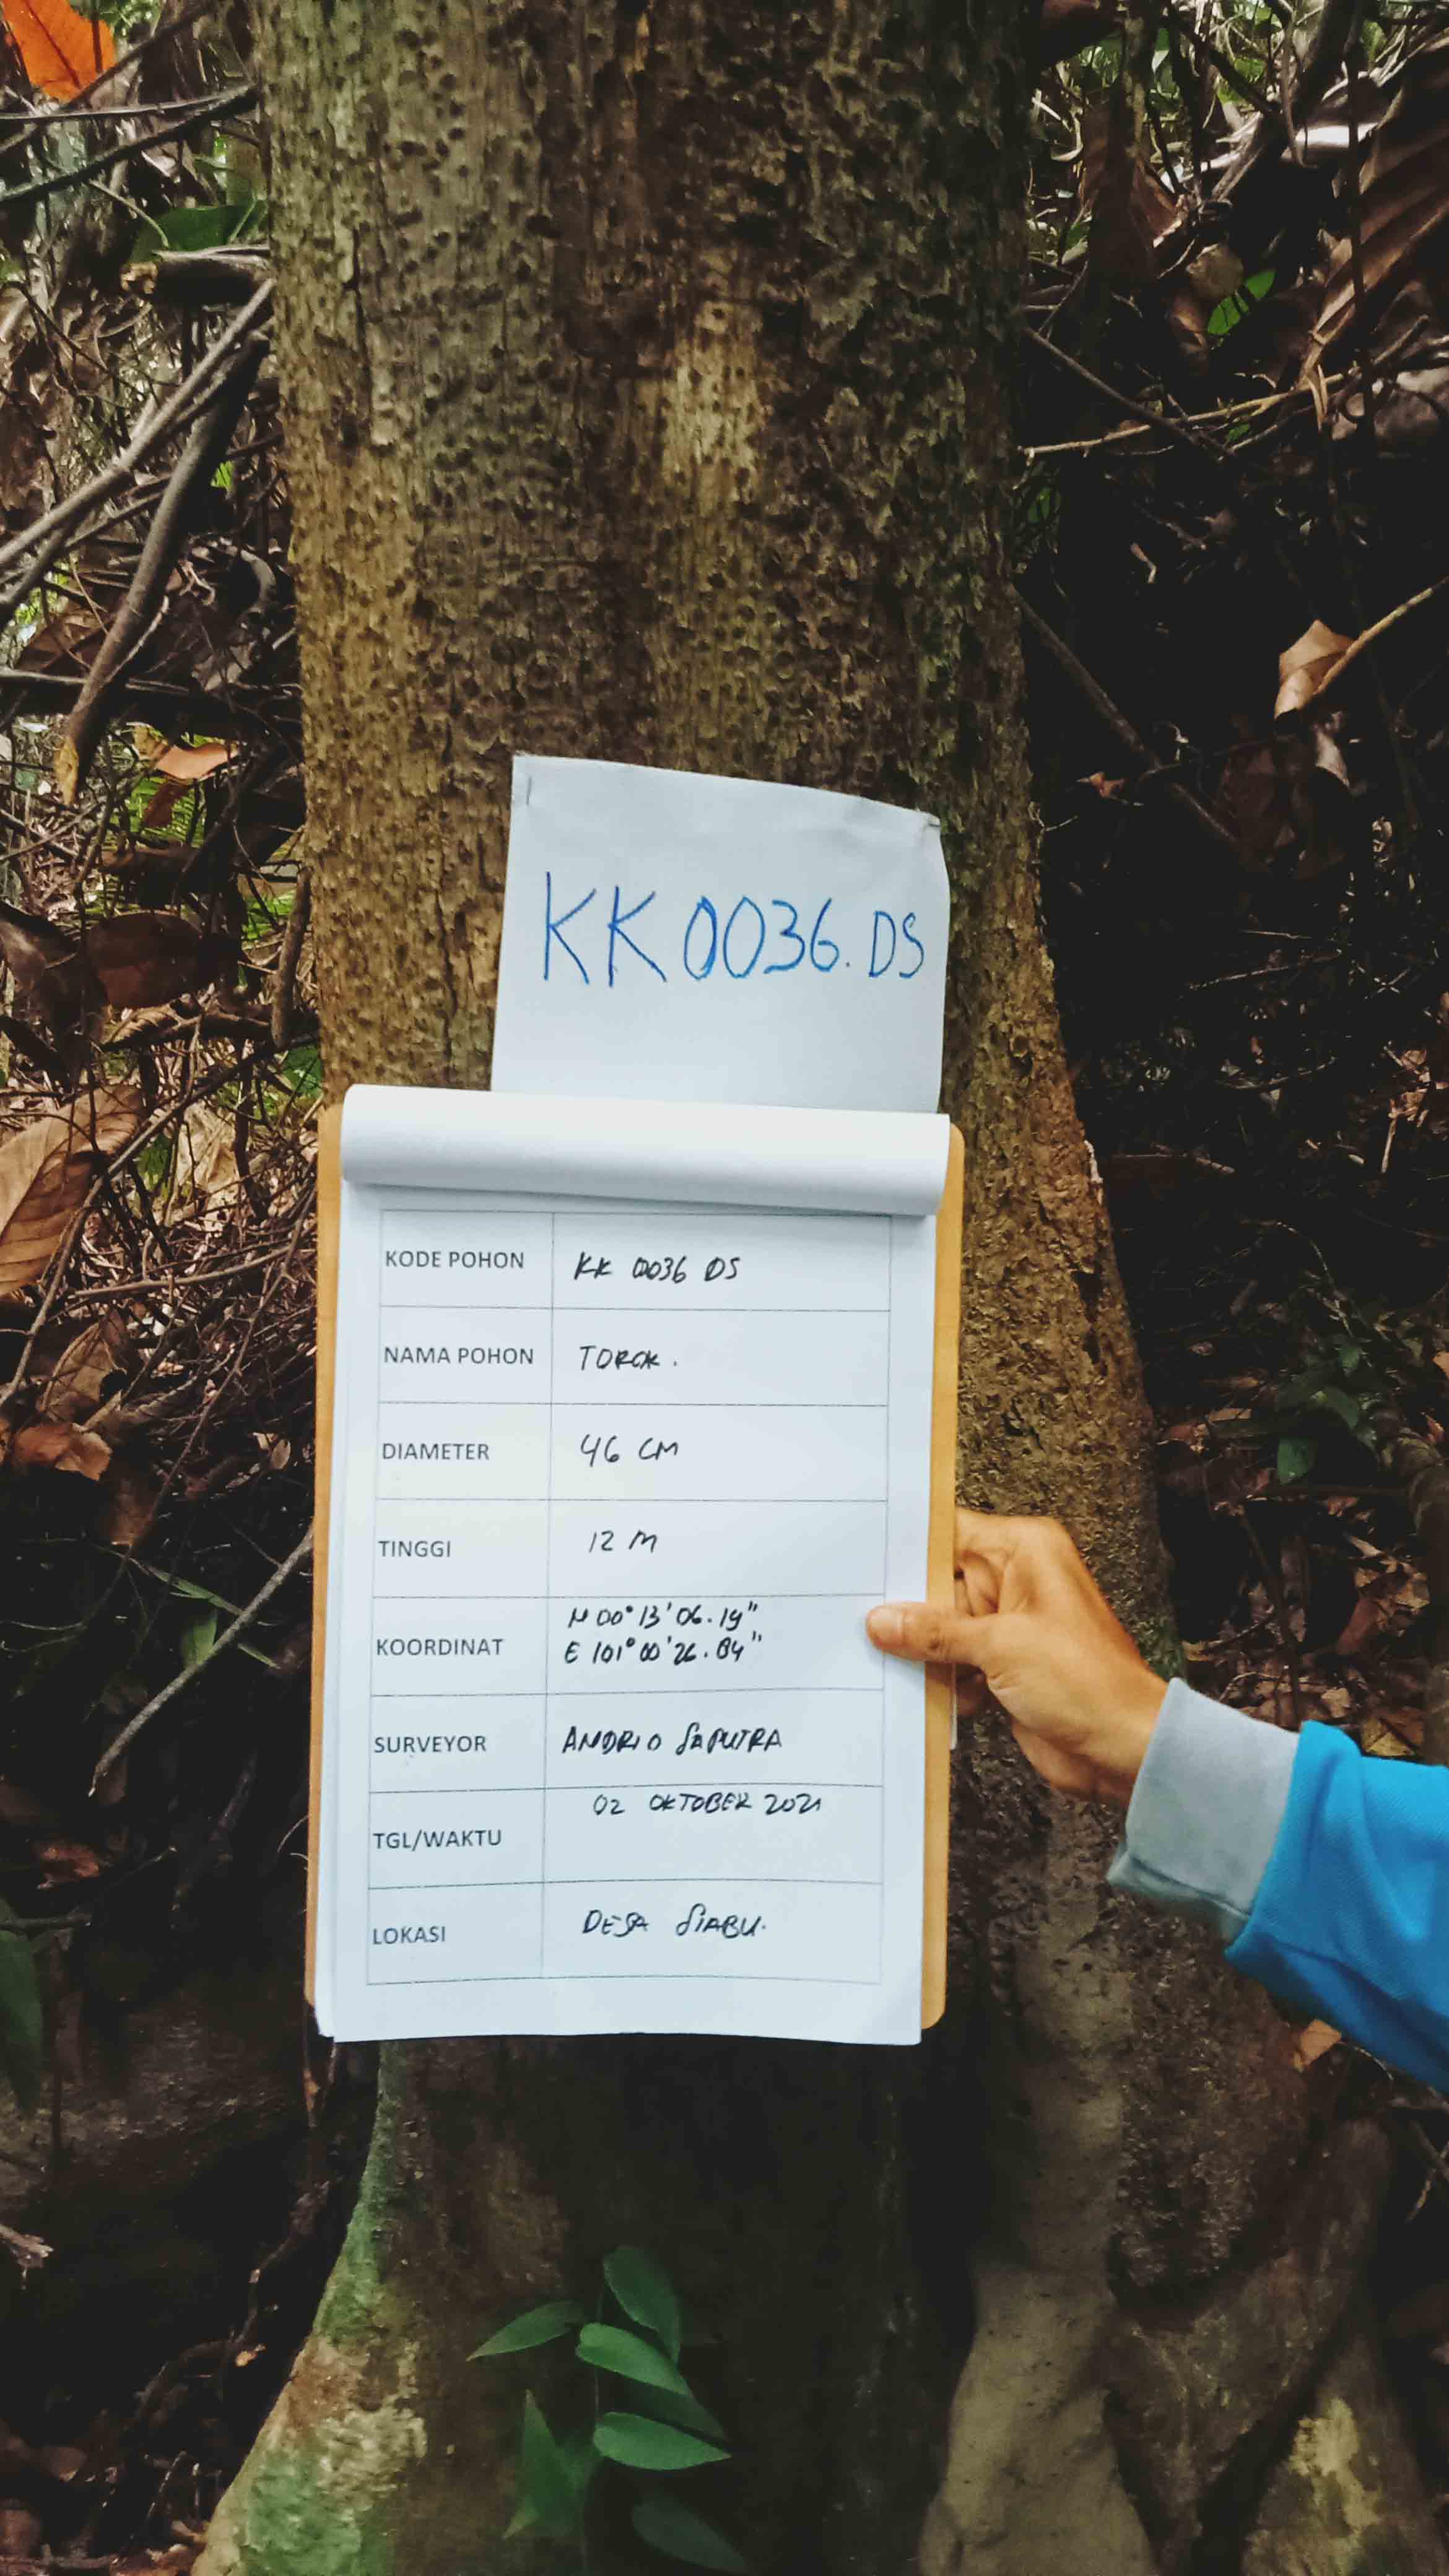 KK 0036. DS
KODE POHON KK 0036 DS
NAMA POHON TOROK.
DIAMETER 46 CM
TINGGI 12 M
KOORDINAT N 00° 13' 06.19"
E 101° 00' 26.84"
SURVEYOR ANDRIO SAPUTRA
TGL/WAKTU 02 OKTOBER 2021
LOKASI DESA SIABU.